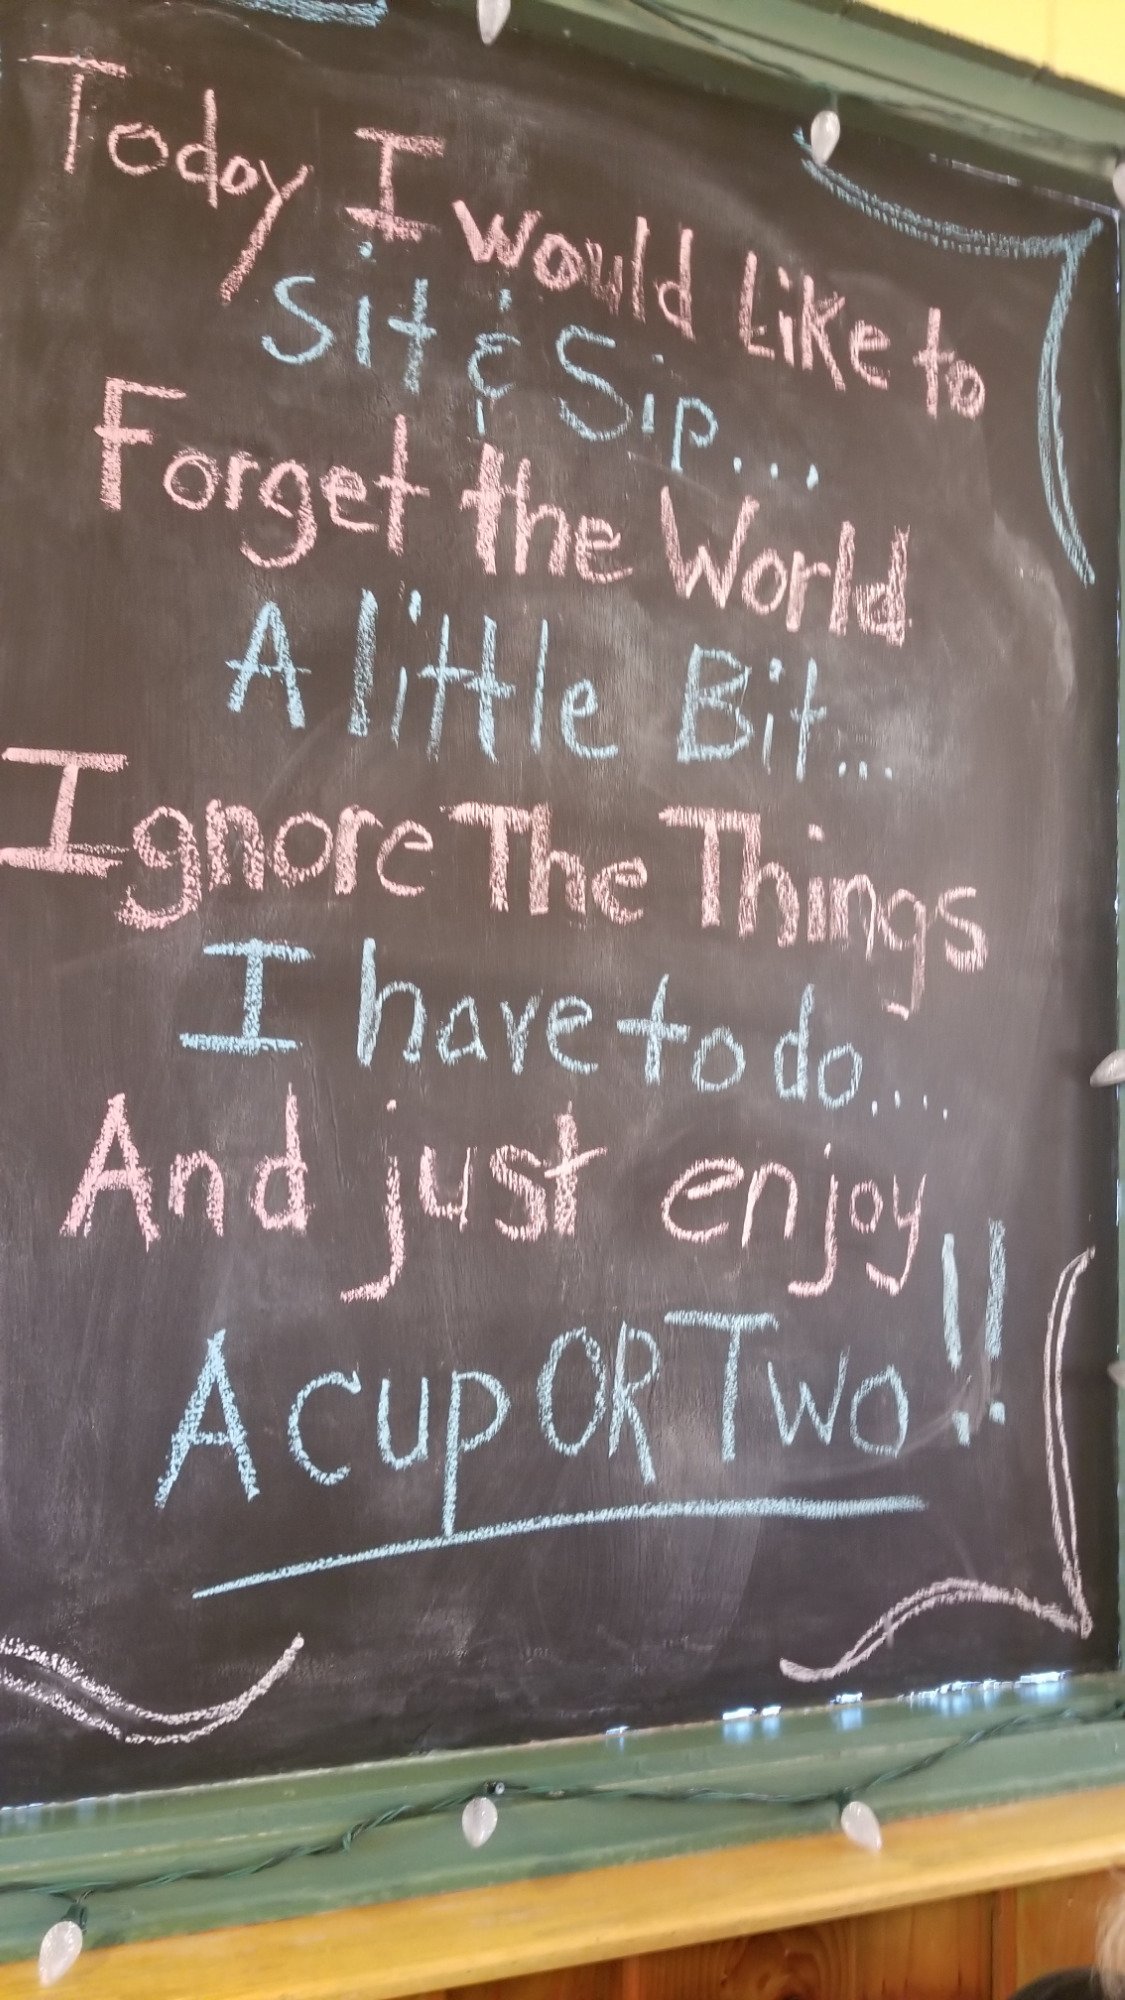 Today I would Like to
Sit & Sip...
Forget the World
A little Bit...
Ignore The Things
I have to do....
And just enjoy
A cup OR Two!!